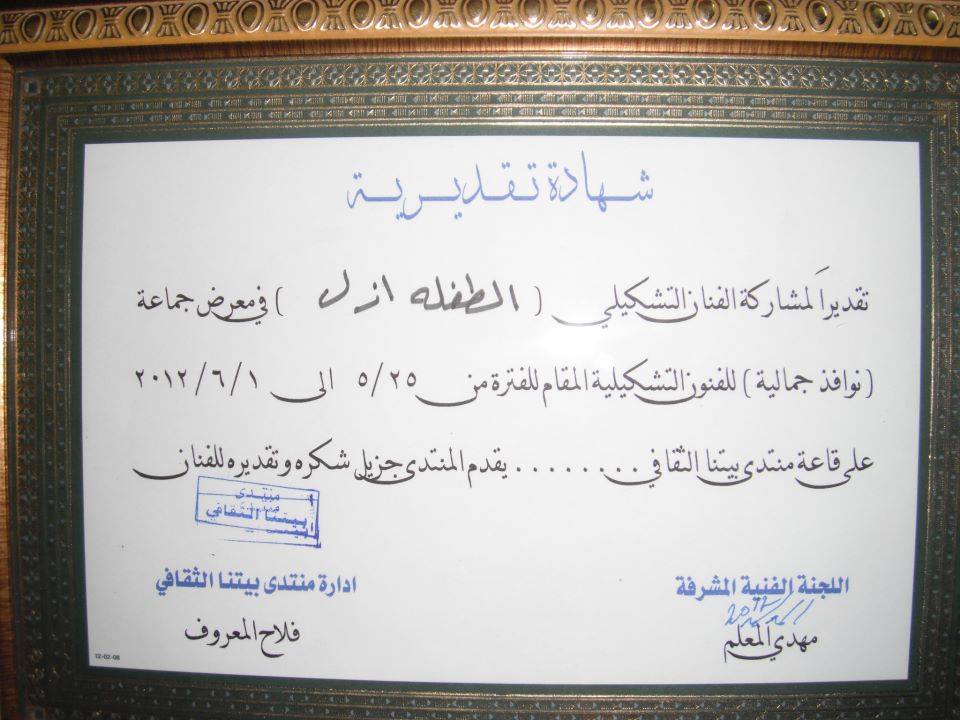 شهادة تقديرية
تقديراً لمشاركة الفنان التشكيلي ( الطفله ازل ) في معرض جماعة
( نوافذ جمالية ) للفنون التشكيلية المقام للفترة من ٥/٢٥ الى ٢٠١٢/٦/١
على قاعة منتدى بيتنا الثقافي ........ يقدم المنتدى جزيل شكره وتقديره للفنان
منتدى
بيتنا الثقافي
اللجنة الفنية المشرفة
2012
مهدي المعلم
ادارة منتدى بيتنا الثقافي
فلاح المعروف
12-02-08